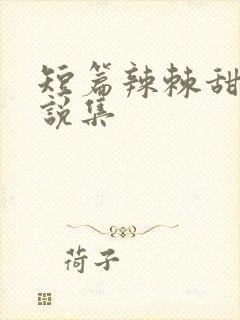 短篇辣棘甜
说集
荷子